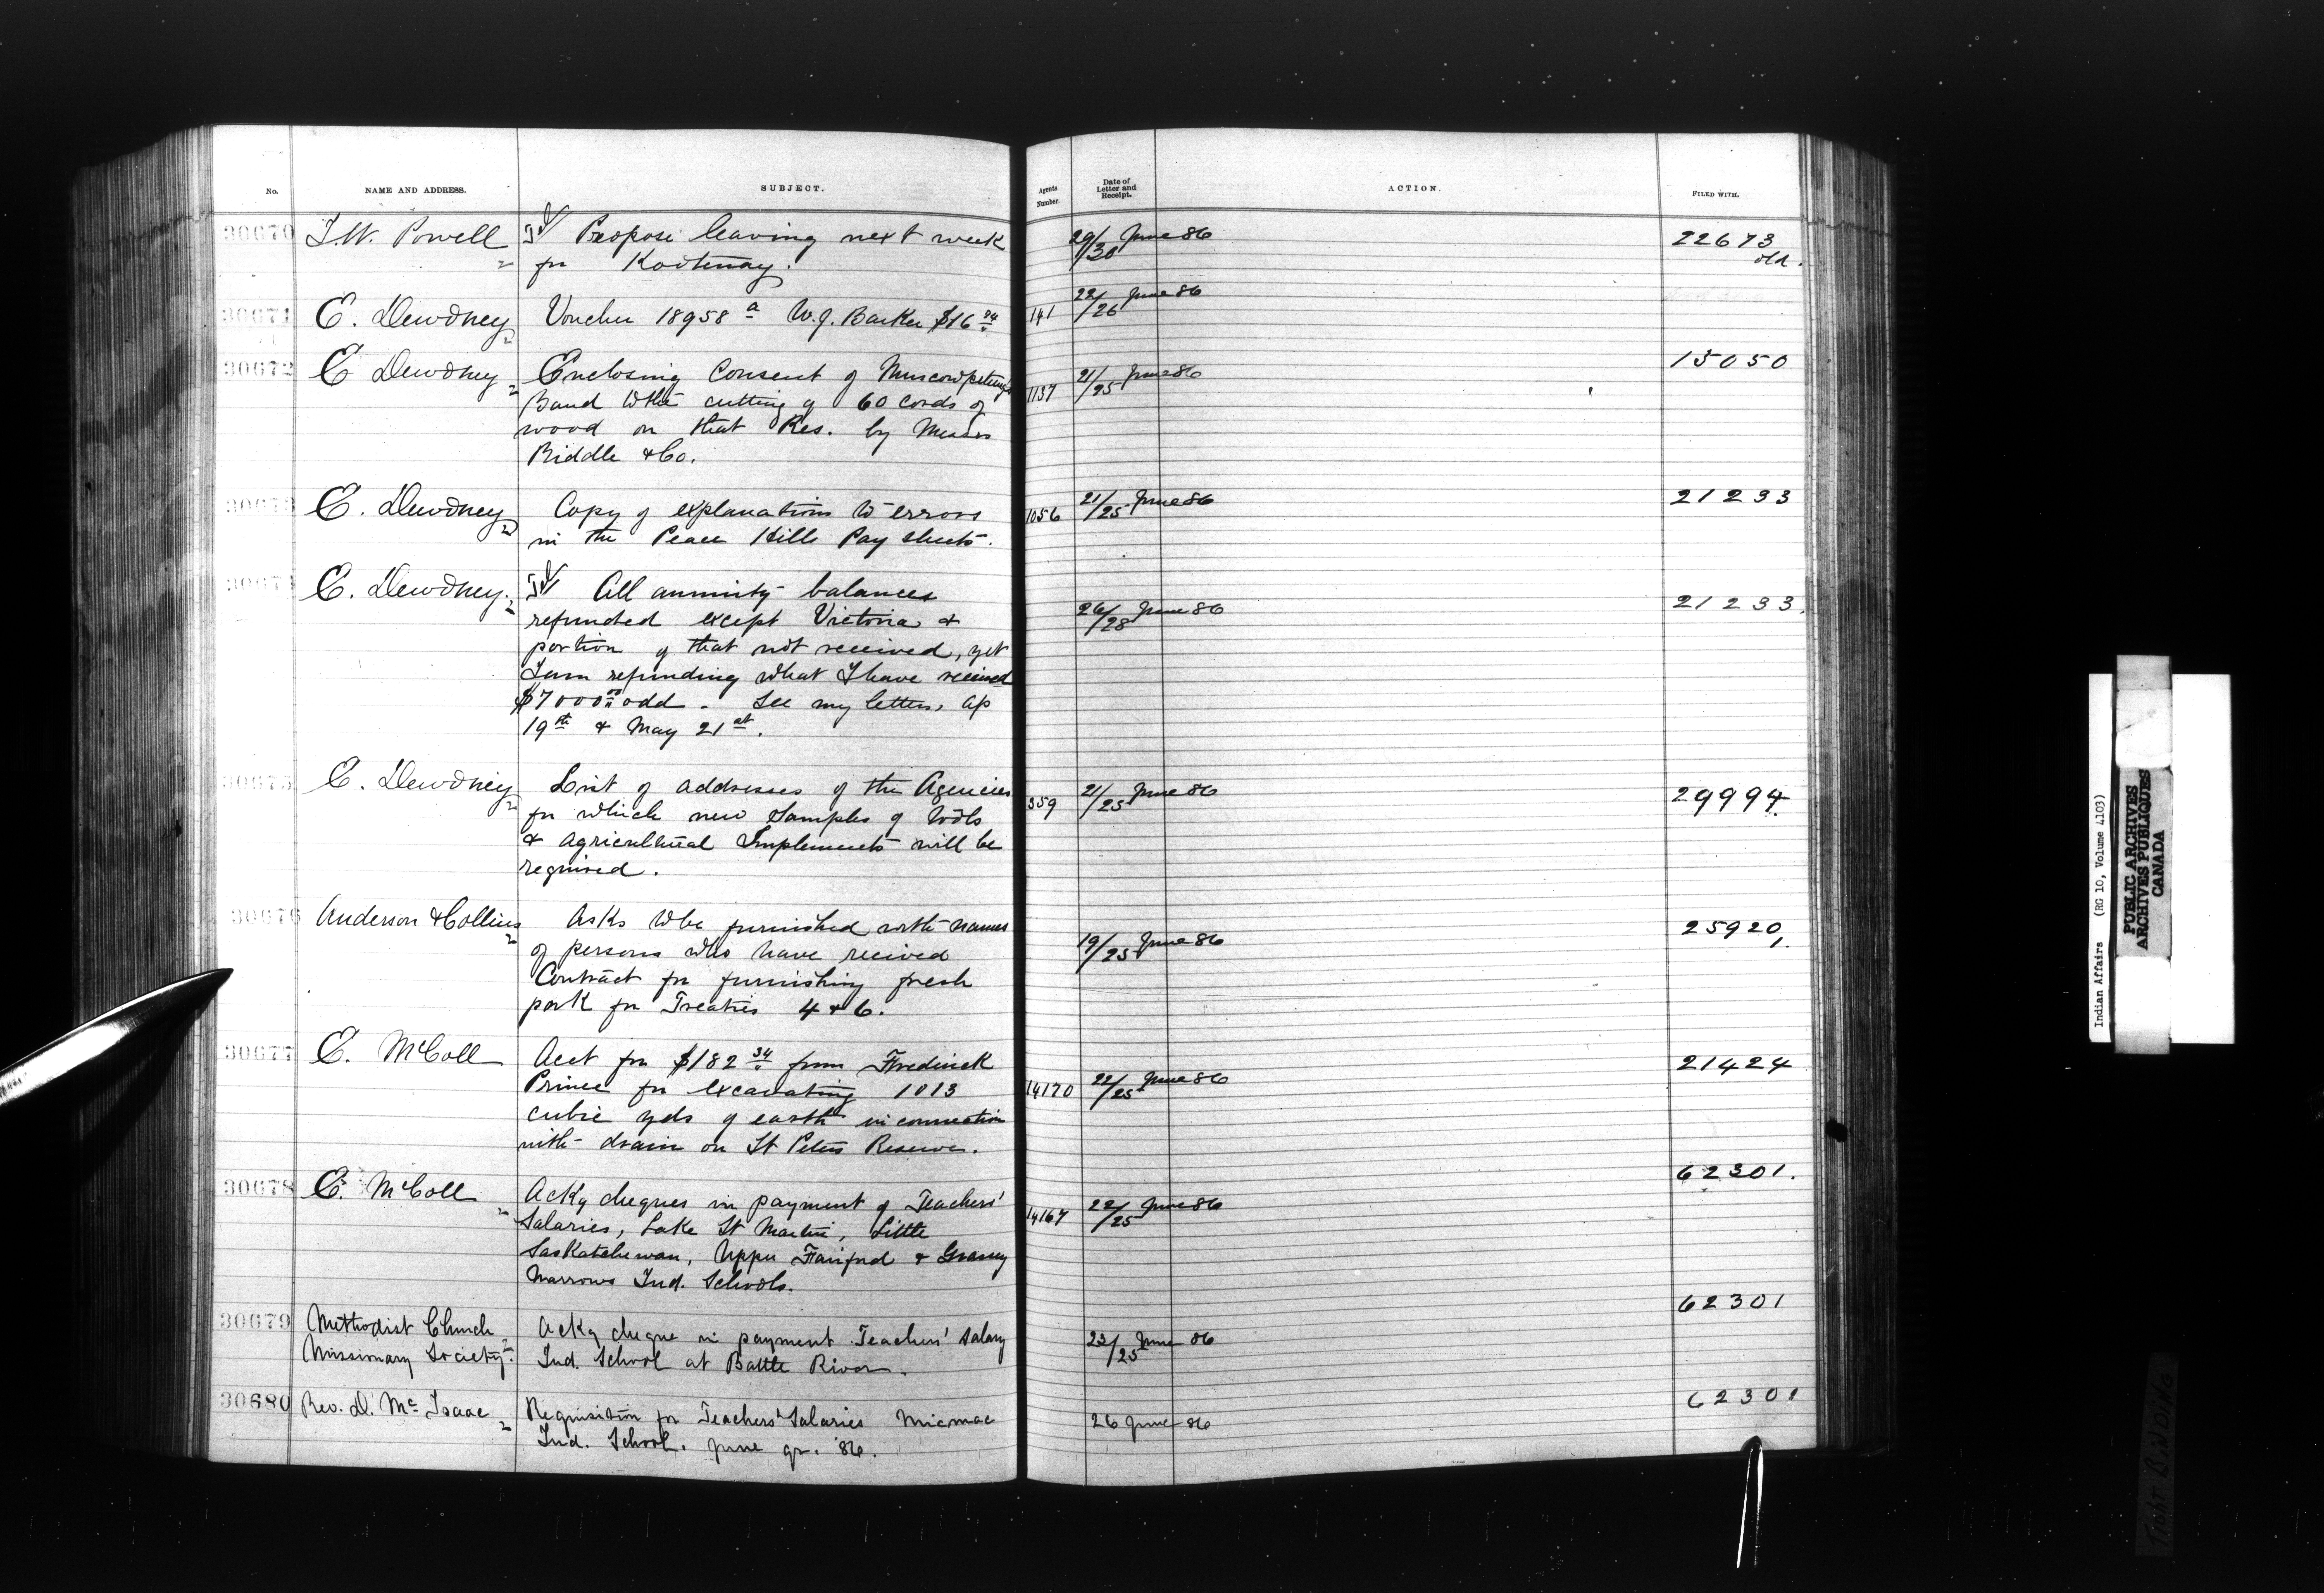 No. NAME AND ADDRESS. SUBJECT. Agents Number. Date of Letter and Receipt. ACTION. FILED WITH.
30670 I.W. Powell Propose leaving next week 29/30 June 86 22673 old.
for Kootenay.
30671 E. Dewdney Voucher 18958 a W.J. Barker $16 141 22/26 June 86
30672 E Dewdney Enclosing Consent of Muscowpetung's 1137 21/25 June 86 13050
Band to the cutting of 60 cords of
wood on that Res. by Messrs
Riddle & Co.
30673 E. Dewdney Copy of explanations to errors 1056 21/25 June 86 21233
in the Peace Hills Pay sheets.
30674 E. Dewdney. All annuity balances 26/28 June 86 21233.
refunded except Victoria &
portion of that not received, yet
I am refunding what I have received
$7000 00 odd. See my letters, Ap
19th & May 21st.
30675 E. Dewdney List of addresses of the Agencies 359 21/25 June 86 29994.
for which new samples of tools
& agricultural Implements will be
required.
30676 Anderson & Collins Asks to be furnished with names 19/25 June 86 25920
of persons who have received
Contract for furnishing fresh
pork for Treaties 4 & 6.
30677 E. McColl Acct for $182 34 from Frederick 14170 22/25 June 86 21424
Prince for excavating 1013
cubic yds of earth in connection
with drain on St Peters Reserve.
30678 E. McColl Ackg cheques in payment of Teachers' 14167 22/25 June 86 62301.
Salaries, Lake St Martin, Little
Saskatchewan, Upper Fairford & Grassy
Narrows Ind. Schools.
30679 Methodist Church Ackg cheque in payment Teachers' Salary 23/25 June 86 62301
Missionary Society. Ind. School at Battle River.
30680 Rev. D. Mc Isaac Requisition for Teachers' Salaries Micmac 26 June 86 62301
Ind. School. June qr. '86.
Indian Affairs (RG 10, Volume 4103)
PUBLIC ARCHIVES
ARCHIVES PUBLIQUES
CANADA